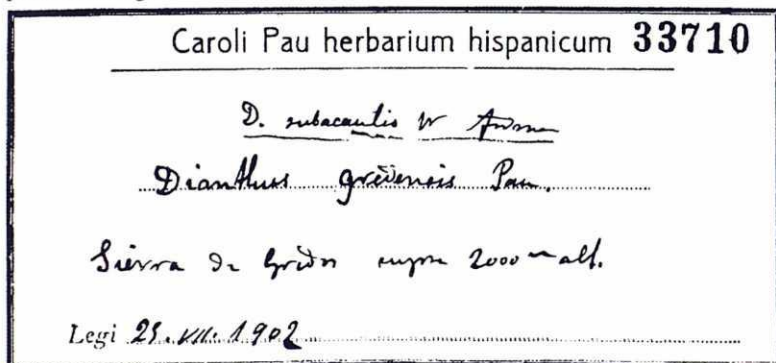 Caroli Pau herbarium hispanicum 33710
D. subacaulis
Dianthus gredensis Pau.
Sierra de Gredos supra 2000 m alt.
Legi 25. VII. 1902